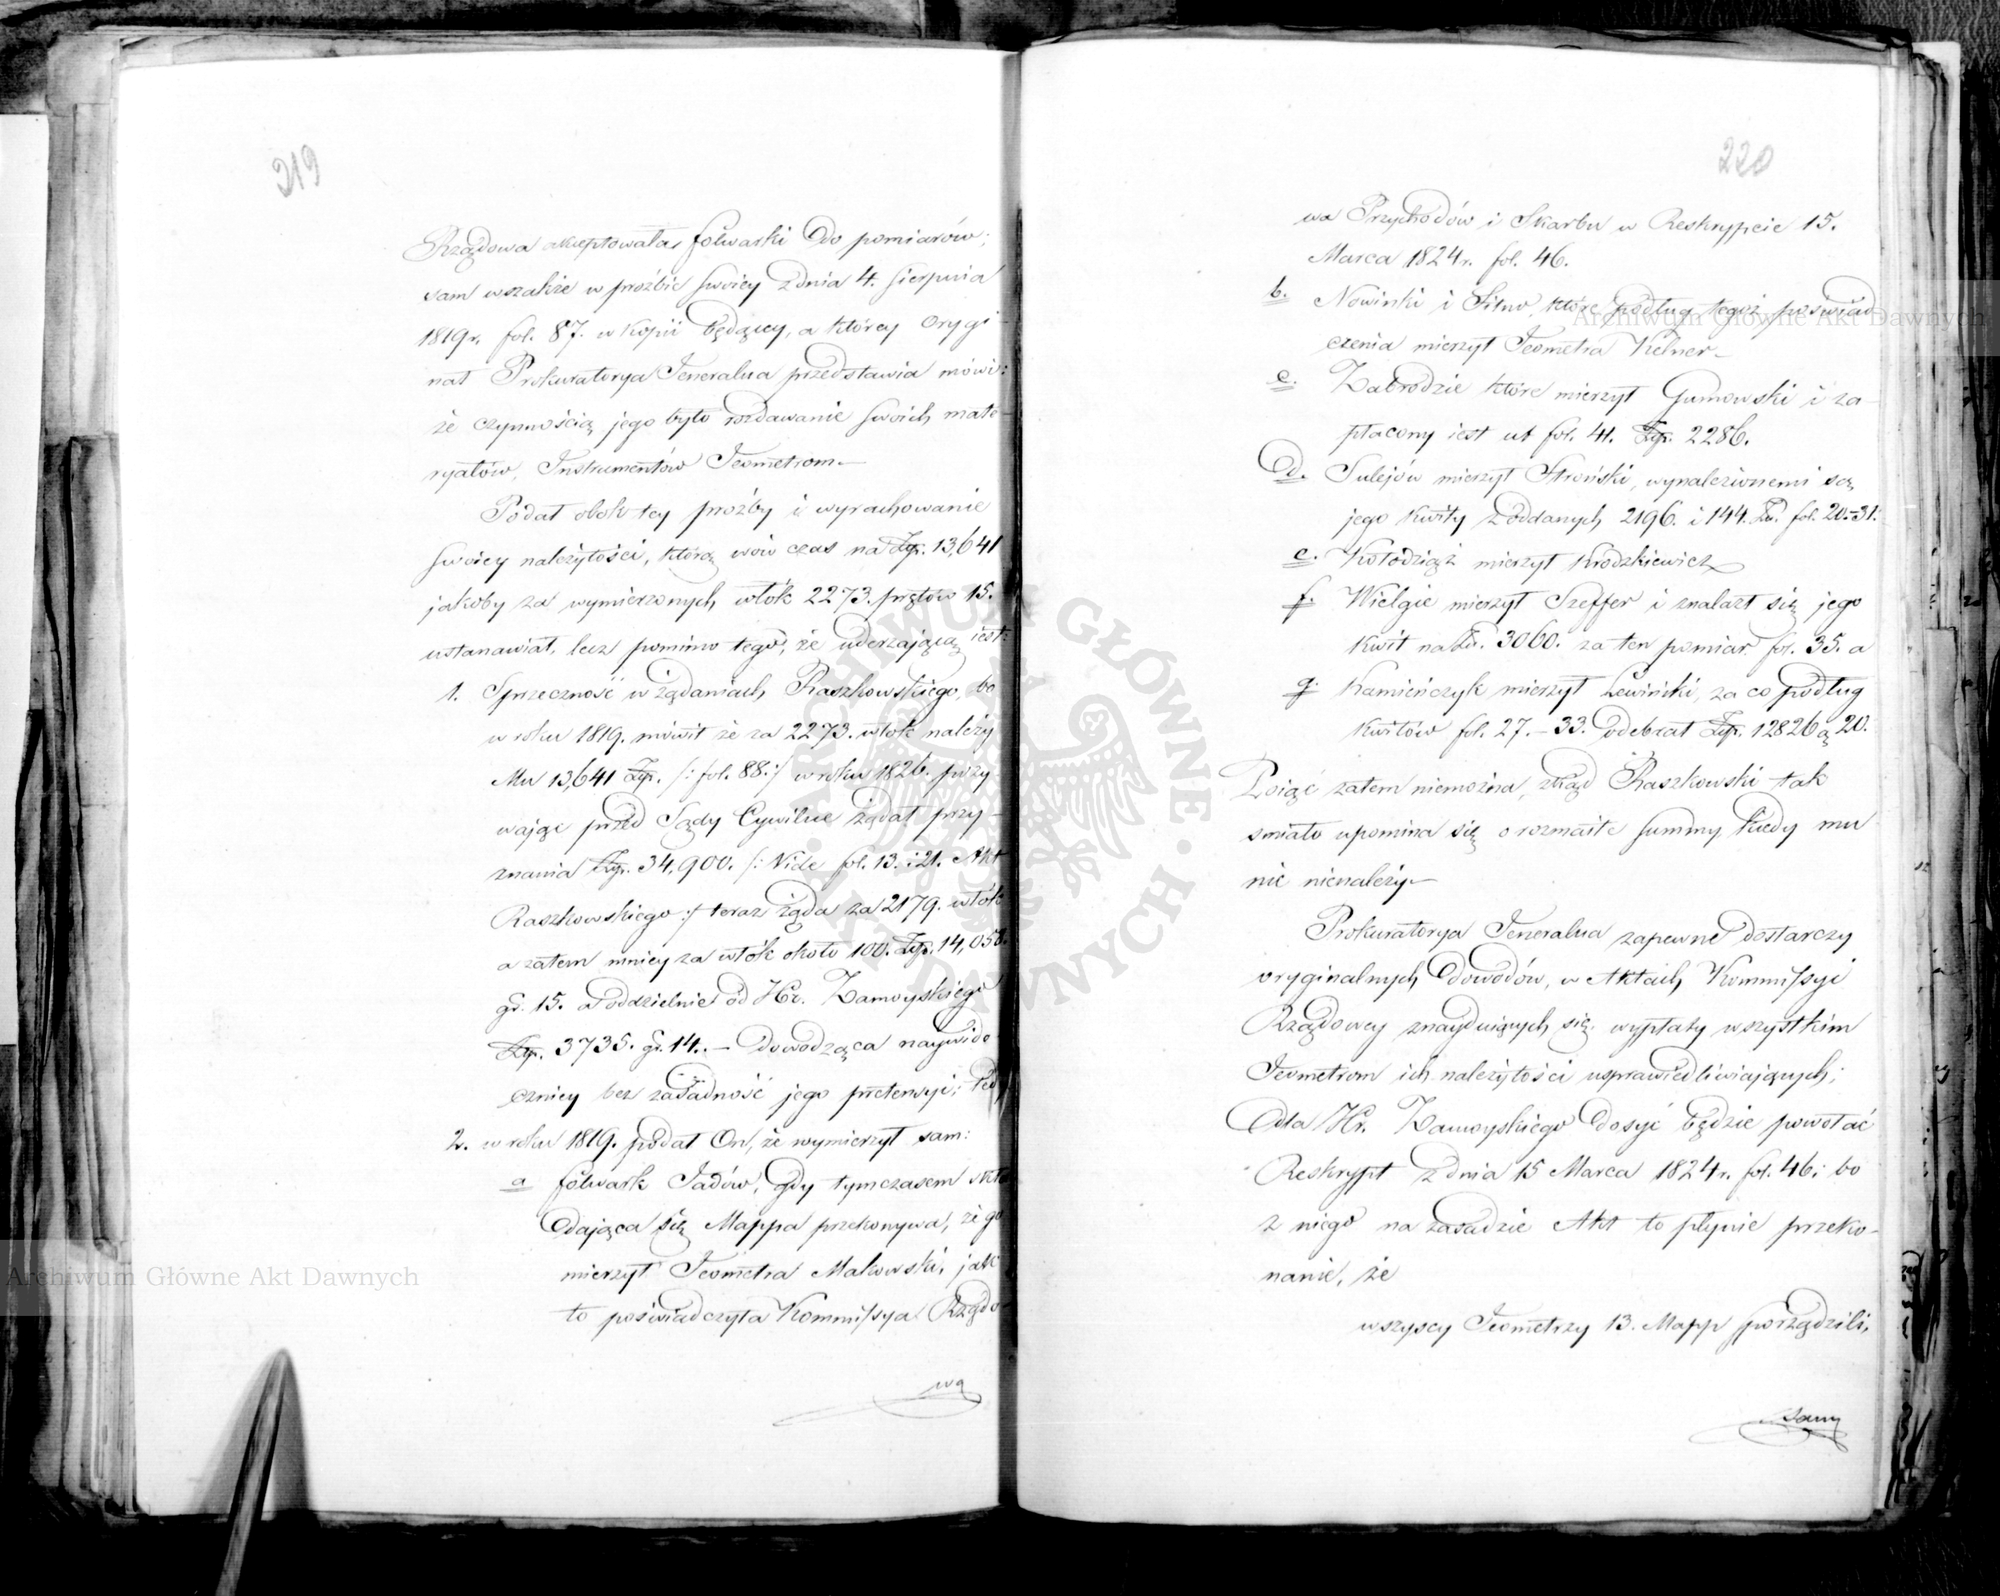 219
Rządowa akceptowała folwarki do pomiarów;
sam wszakże w proźbie swoiey z dnia 4. Sierpnia
1819 r. fol. 87. w kopii będącey, a którey orygi-
nał Prokuratorya Jeneralna przedstawia mówi:
że czynnością jego było rozdawanie swoich mate-
ryałów, Instrumentów Jeometrom.—
Podał obok tey proźby i wyrachowanie
swoiey należytości, którą wów czas na Złp. 13,641
jakoby za wymierzonych włók 2273. prętów 15.
ustanawiał, lecz pomimo tego, że uderzającą iest:
1. Sprzeczność w żądaniach Raszkowskiego, bo
w roku 1819. mówił że za 2273. włók należy
Mu 13,641 Złp. /: fol. 88:/ w roku 1826. pozy-
wając przed Sądy Cywilne żądał przy-
znania Złp. 34,900. /: Vide fol. 13. i 21. Akt
Raszkowskiego :/ teraz żąda za 2179. włók
a zatem mniey za włók około 100. Złp. 14,058.
gr. 15. a oddzielnie od Hr. Zamoyskiego
Złp. 3735. gr. 14. — dowodząca naywido-
czniey bez zasadność jego pretensyi;
2. w roku 1819. podał On, że wymierzył sam:
a folwark Jadów, gdy tymczasem skła
dająca się Mappa przekonywa, że go
mierzył Jeometra Makowski, jak
to poświadczyła Kommissya Rządo-
wa
220
wa Przychodów i Skarbu w Reskrypcie 15.
Marca 1824 r. fol. 46.
b. Nowinki i Sitno, które podług tegoż poświad
czenia mierzył Jeometra Kelner—
c. Zabrodzie które mierzył Gumowski i za-
płacony iest ut fol. 41. Złp. 2286.
d. Sulejów mierzył Stroński, wynalezionemi są
jego kwity z oddanych 2196. i 144. Zł. fol. 20.–31.
e. Kołodziąż mierzył Krodzkiewicz
f. Wielgie mierzył Szeffer i znalazł się jego
kwit na Zł. 3060. za ten pomiar fol. 35. a
g. Kamieńczyk mierzył Lewiński, za co podług
kwitów fol. 27. – 33. odebrał Złp. 12826 g 20.
Pojąć zatem niemożna, zkąd Raszkowski tak
smiało upomina się o rozmaite summy kiedy mu
nic nienależy—
Prokuratorya Jeneralna zapewne dostarczy
oryginalnych dowodów, w Aktach Kommissyi
Rządowey znayduiących się wypłaty wszystkim
Jeometrom ich należytości usprawiedliwiających;
dla Hr. Zamoyskiego dosyć będzie powołać
Reskrypt z dnia 15 Marca 1824 r. fol. 46; bo
z niego na zasadzie Akt to płynie przeko-
nanie, że
wszyscy Jeometrzy 13. Mapp porządzili,
Archiwum Główne Akt Dawnych
Archiwum Główne Akt Dawnych
ARCHIWUM GŁÓWNE · AKT DAWNYCH ·